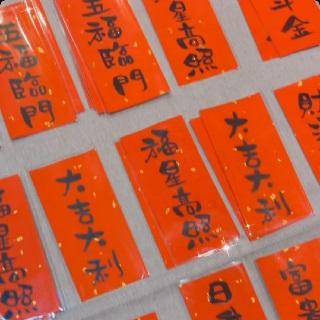 五福臨門
五福臨門
福星高照
斗金
福星高照
大吉大利
福星高照
大吉大利
財
日
富